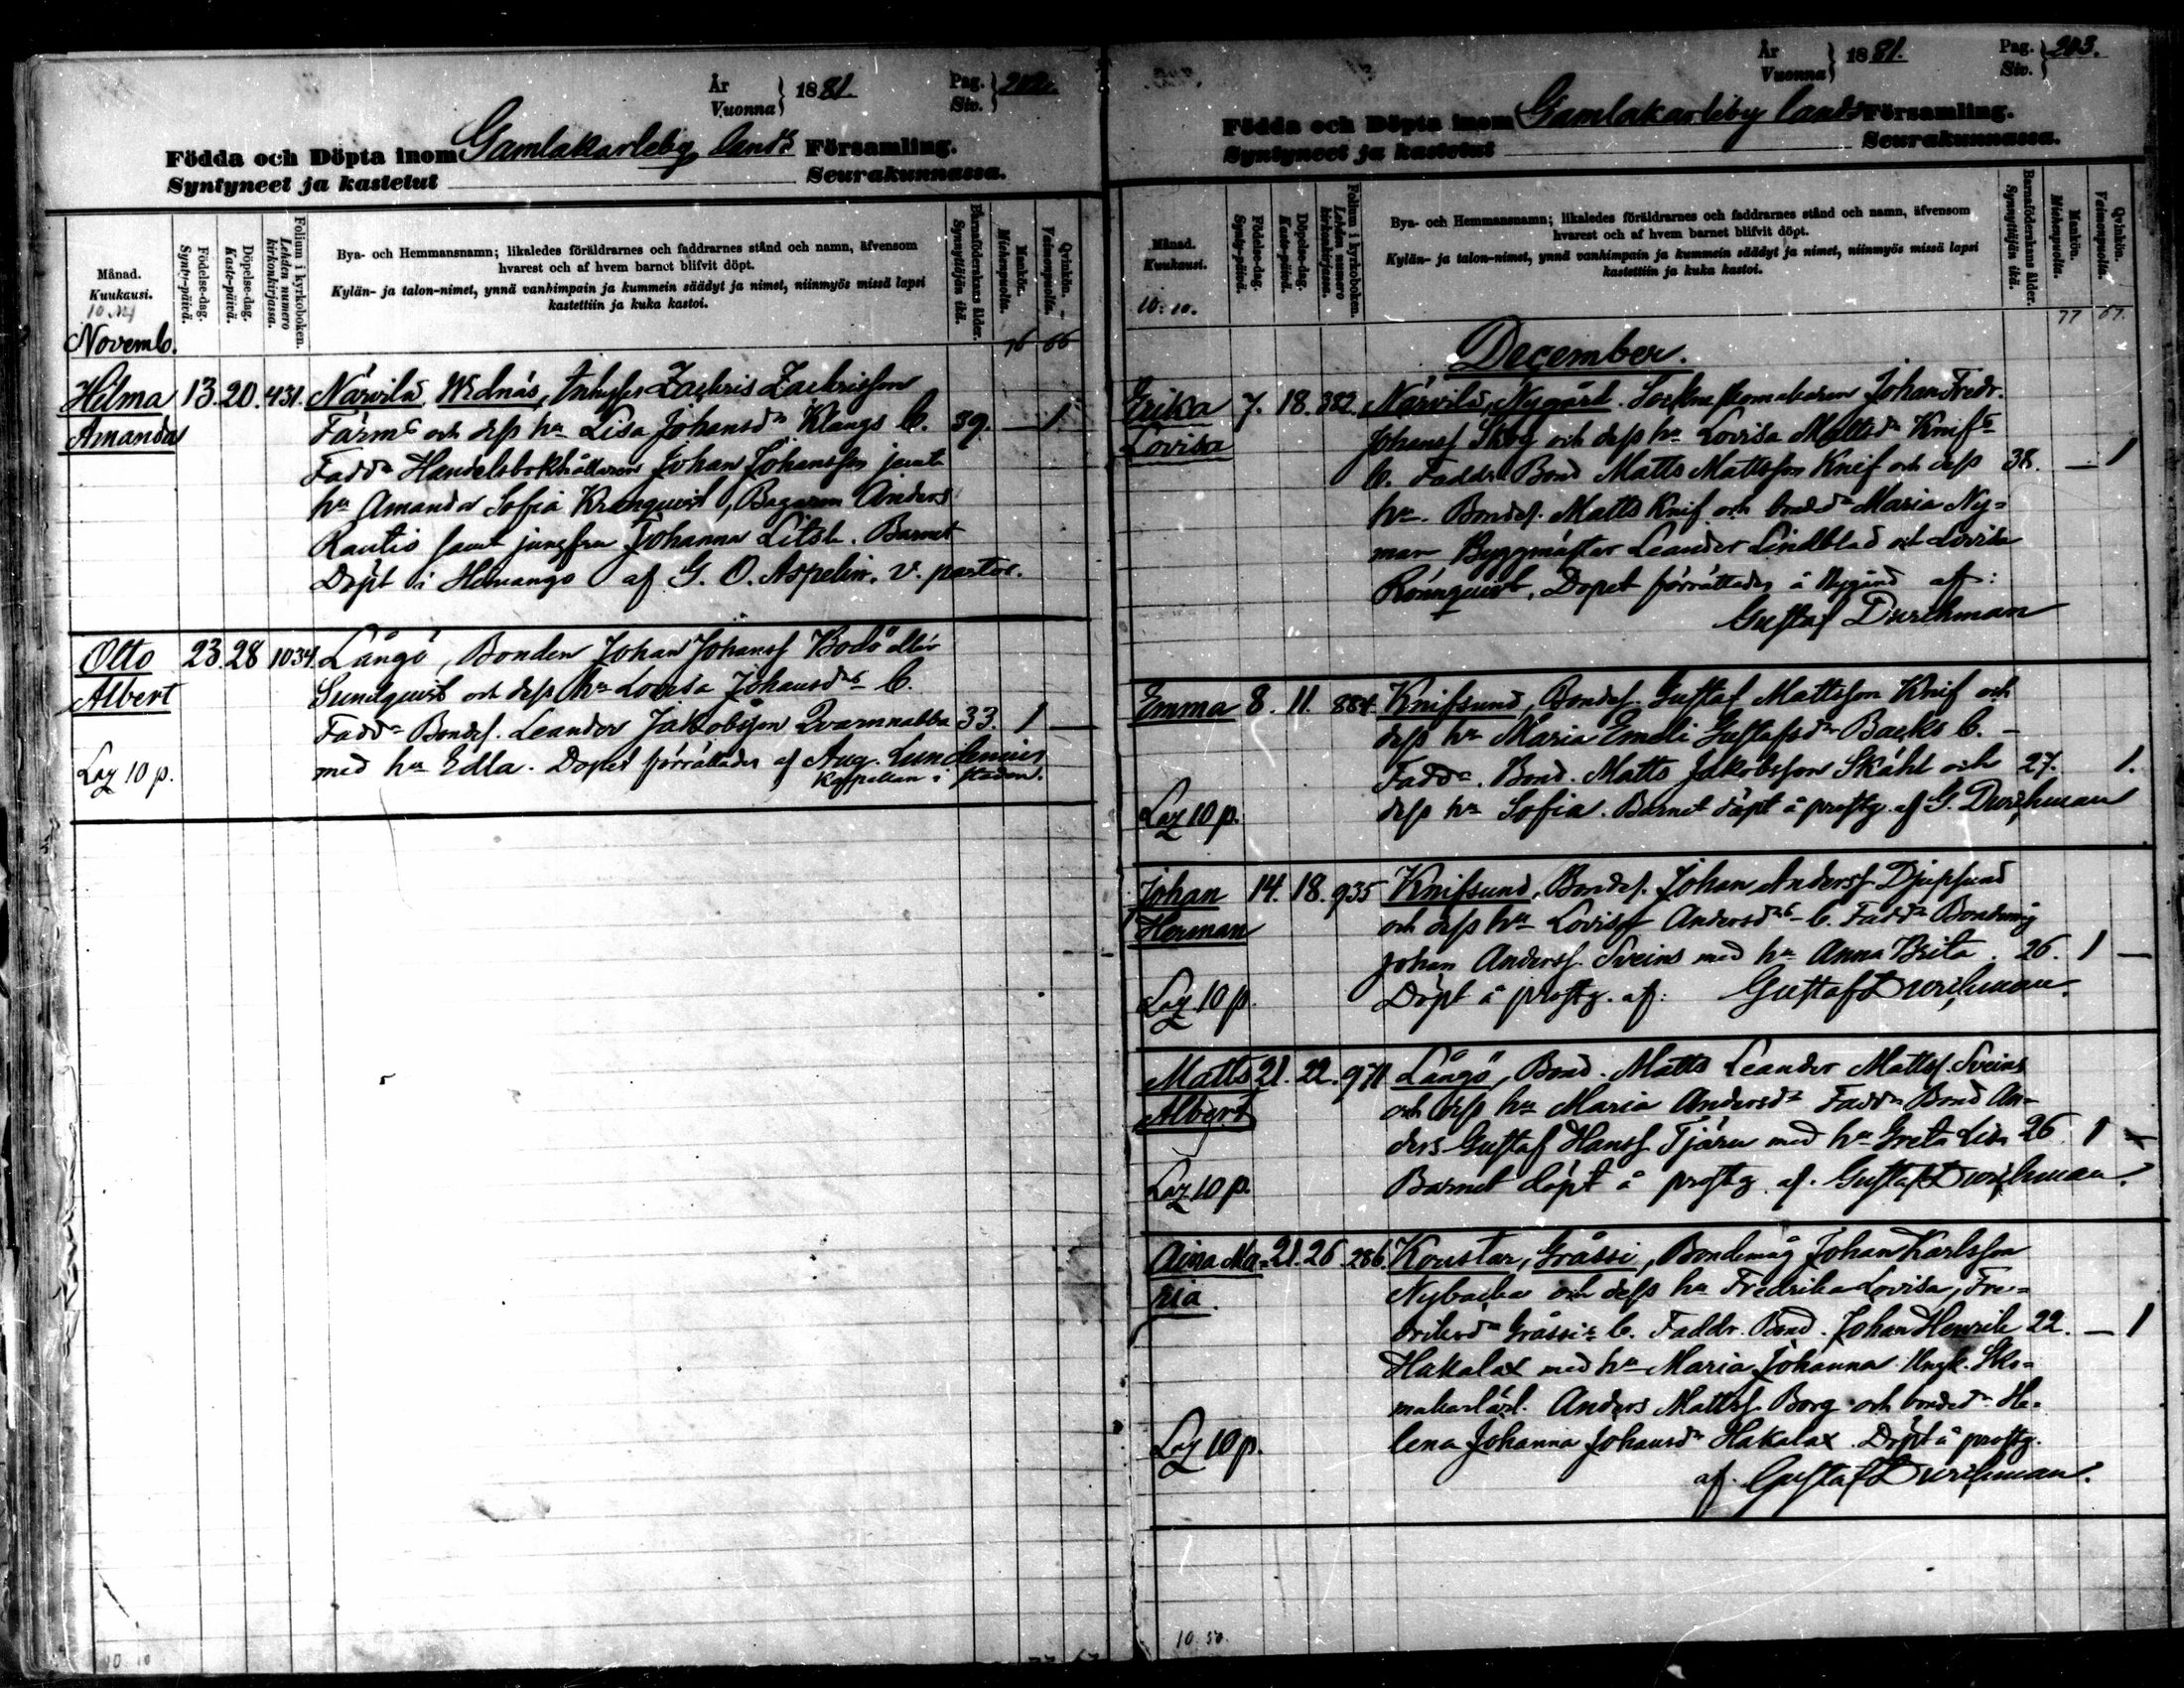 År
Vuonna } 1881. Pag.
Siv. } 202.
Födda och Döpta inom Gamlakarleby lands Församling.
Syntyneet ja kastetut Seurakunnassa.
Månad.
Kuukausi.
Födelse-dag.
Synty-päivä.
Döpelse-dag.
Kaste-päivä.
Folium i kyrkoboken.
Lehden numero
kirkonkirjassa.
Bya- och Hemmansnamn; likaledes föräldrarnes och faddrarnes stånd och namn, äfvensom
hvarest och af hvem barnet blifvit döpt.
Kylän- ja talon-nimet, ynnä vanhimpain ja kummein säädyt ja nimet, niinmyös missä lapsi
kastettiin ja kuka kastoi.
Barnaföderskans ålder.
Synnyttäjän ikä.
Mankön.
Miehenpuolia.
Qvinkön.
Vaimonpuolia.
Novemb. 76 66
Helma 13. 20. 431. Närvilä Widnäs, Inhyses Zachris Zachrisson
Amanda Farm och dess hu Lisa Johansdr Klangs C. 39. — 1
Faddr Handelsbokhållaren Johan Johansson jemte
hu Amanda Sofia Kranquist, Bagaren Anders
Rautio samt jungfru Johanna Litsl. Barnet
Döpt i Himango af G. O. Aspelin, v. pastor.
Otto 23. 28 1034. Långö, Bonden Johan Johanss Bodö eller
Albert Sundquist och dess hu Lovisa Johansdr C.
Faddr Bondes. Leander Jakobsson Qvarnnabba 33. 1 —
Laz 10 p. med hu Edla. Dopet förrättades af Aug. Lundenius
Kappellan i staden.
År
Vuonna } 1881. Pag.
Siv. } 203.
Födda och Döpta inom Gamlakarleby lands Församling.
Syntyneet ja kastetut Seurakunnassa.
Månad.
Kuukausi.
10.10.
Födelse-dag.
Synty-päivä.
Döpelse-dag.
Kaste-päivä.
Folium i kyrkoboken.
Lehden numero
kirkonkirjassa.
Bya- och Hemmansnamn; likaledes föräldrarnes och faddrarnes stånd och namn, äfvensom
hvarest och af hvem barnet blifvit döpt.
Kylän- ja talon-nimet, ynnä vanhimpain ja kummein säädyt ja nimet, niinmyös missä lapsi
kastettiin ja kuka kastoi.
Barnaföderskans ålder.
Synnyttäjän ikä.
Mankön.
Miehenpuolia.
Qvinkön.
Vaimonpuolia.
77 67.
December.
Erika 7. 18. 382. Närvilä, Nygård. Sockneskomakaren Johan Fredr.
Lovisa Johanss Skog och dess hu Lovisa Mattsdr Knifs
C. Faddr. Bond Matts Mattsson Knif och dess 38. — 1
hu. Bondes. Matts Knif och bonded. Maria Ny=
man Byggmästar Leander Lindblad och Lovisa
Rönnquist, Dopet förrättades å Nygård af:
Gustaf Durchman
Emma 8. 11. 884. Knifsund, Bondes. Gustaf Mattsson Knif och
dess hu Maria Emeli Gustafsdr Backs C. –
Faddr. Bond. Matts Jakobsson Skåhl och 27. 1.
Laz 10 p. dess hu Sofia. Barnet döpt å prostg. af G. Durchman
Johan 14. 18. 935 Knifsund, Bondes. Johan Anderss Djupsund
Herman och dess hu Lovisa Andersdr C. Faddr Bondemåg
Johan Anderss Sveins med hu Anna Brita. 26. 1 —
Laz 10 p. Döpt å prostg. af: Gustaf Durchman.
Matts 21. 22. 971 Långö, Bond. Matts Leander Mattss. Sveins
Albert och dess hu Maria Andersdr Faddr Bond An-
ders Gustaf Hanss Tjäru med hu Greta Lisa 26. 1 —
Laz 10 p. Barnet döpt å prostg. af. Gustaf Durchman.
Aina Ma= 21. 26. 286. Koustar, Gråssi, Bondemåg Johan Karlsson
ria. Nybacka och dess hu Fredrika Lovisa, Fre=
driksdr Gråssis C. Faddr. Bond. Johan Henrik 22. — 1
Hakalax med hu Maria Johanna Ungk. Sko=
makarlärl. Anders Mattss. Borg och bonded. He-
Laz 10 p. lena Johanna Johansdr Hakalax. Döpt å prostg.
af. Gustaf Durchman.
10.50.